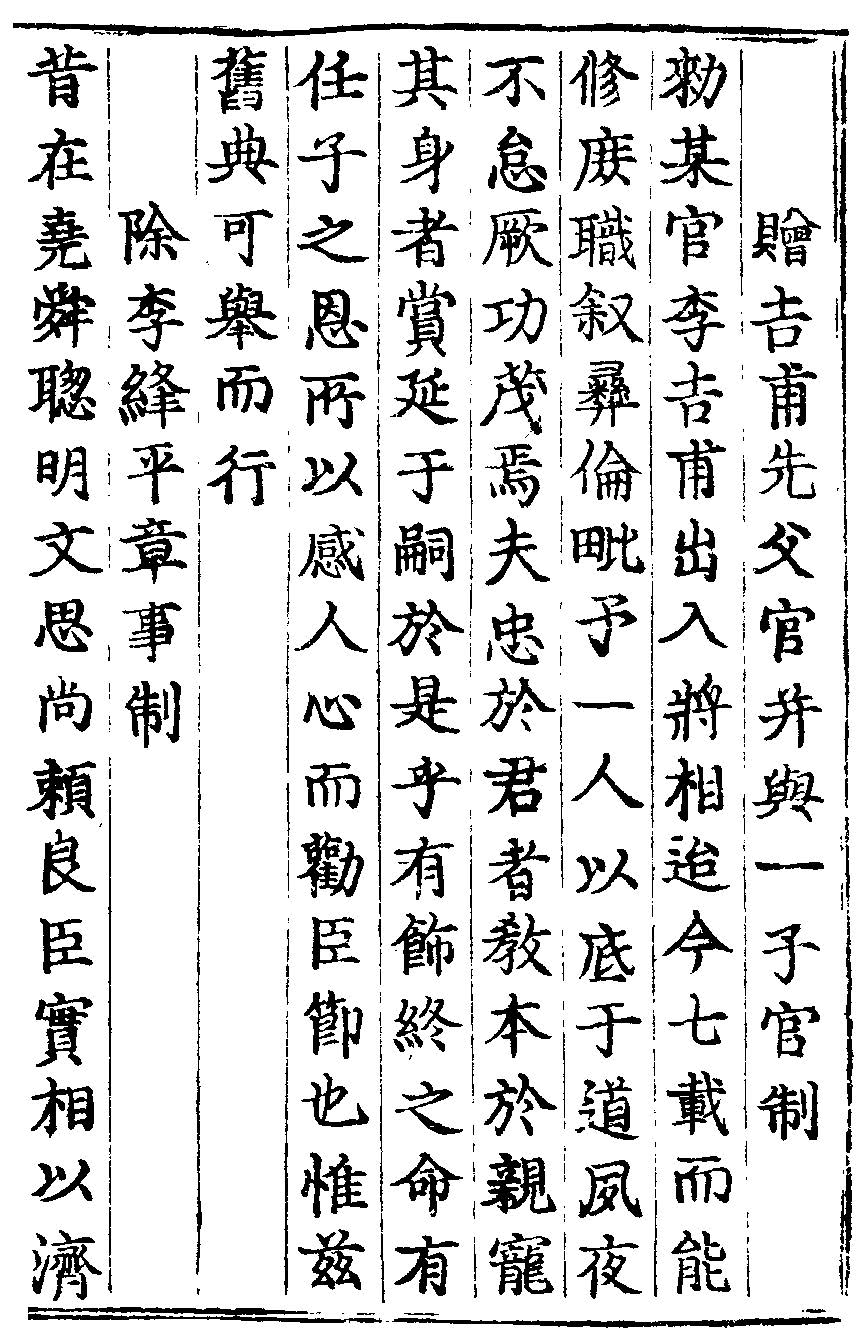 贈吉甫先父官并與一子官制
勑某官李吉甫出入將相迨今七載而能
修庻職叙彛倫毗予一人以底于道夙夜
不怠厥功茂焉夫忠於君者教本於親寵
其身者賞延于嗣於是乎有飾終之命有
任子之恩所以感人心而勸臣節也惟兹
舊典可舉而行
除李絳平章事制
昔在堯舜聰明文思尚頼良臣實相以濟